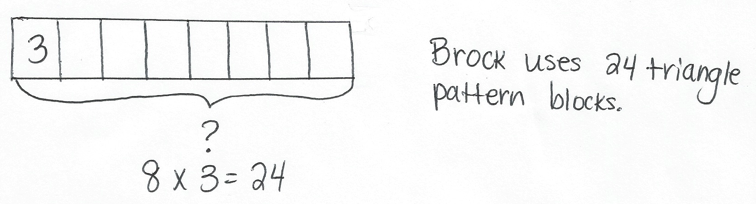 3
?
8 x 3 = 24
Brock uses 24 triangle
pattern blocks.